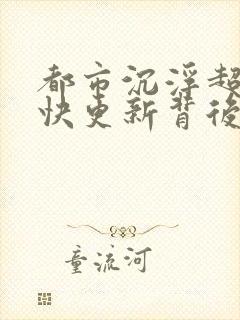 都市沉浮超
快更新背後
童流河